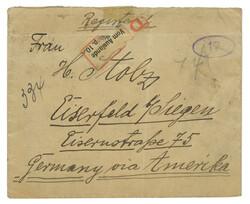 Registered
Frau
H. Stolz
Eiserfeld Siegen
Eisernstraße 75
Germany via Amerika
Vom Auslande
334